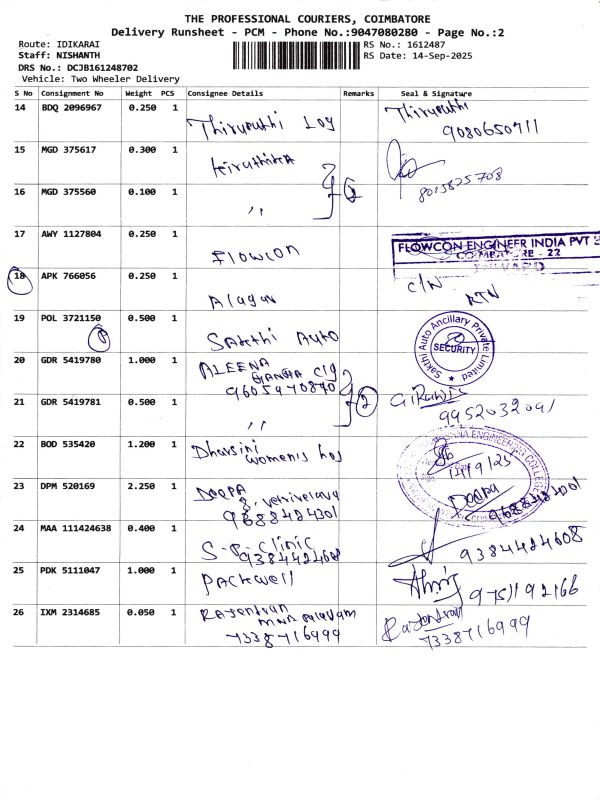 THE PROFESSIONAL COURIERS, COIMBATORE
Delivery Runsheet - PCM - Phone No.:9047080280 - Page No.:2
Route: IDIKARAI
RS No.: 1612487
Staff: NISHANTH
RS Date: 14-Sep-2025
DRS No.: DCJB161248702
Vehicle: Two Wheeler Delivery
S No Consignment No Weight PCS Consignee Details Remarks Seal & Signature
14 BDQ 2096967 0.250 1 Thirupathi Thirupathi
9080650711
15 MGD 375617 0.300 1 kiruthika
8015825708
16 MGD 375560 0.100 1 ,,
17 AWY 1127804 0.250 1 Flowcon
FLOWCON ENGINEER INDIA PVT
COIMBATORE - 22
18 APK 766056 0.250 1 Alagar C/N
RTN
19 POL 3721150 0.500 1 Sakthi Auto
Sakthi Auto Ancillary Private Limited
SECURITY
20 GDR 5419780 1.000 1 ALEENA
GANGA clg
9605970840
2
21 GDR 5419781 0.500 1 ,,
9952032091
22 BOD 535420 1.200 1 Dharsini
womens hos
ENGINEERING COLLEGE
14/9/25
23 DPM 520169 2.250 1 DEEPA
9688424301
Deepa
9688424301
24 MAA 111424638 0.400 1 S-P-Clinic
9384424608
9384424608
25 PDK 5111047 1.000 1 Packwell
9751192166
26 IXM 2314685 0.050 1 Rajendran
7338716999
Rajendran
7338716999